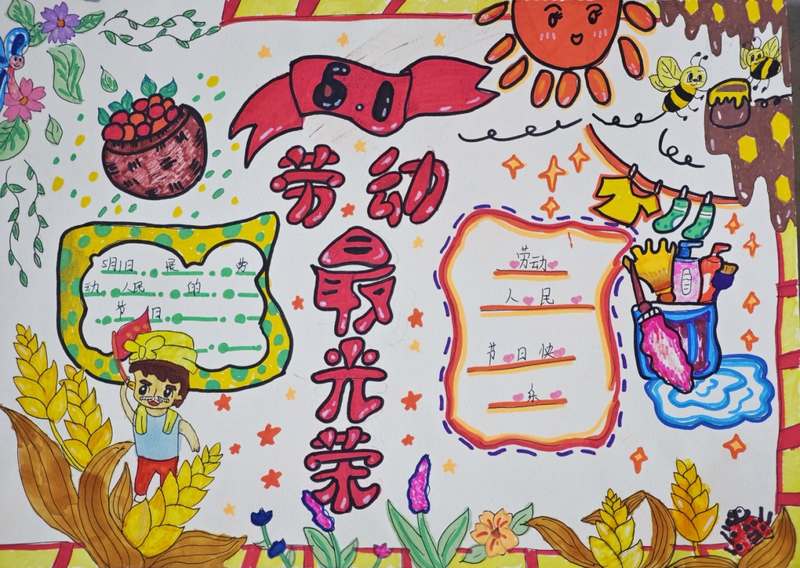 5.1
劳动
最
光
荣
5月1日 展 为
动 人民 的
节 日
劳动
人 民
节 日 快
乐